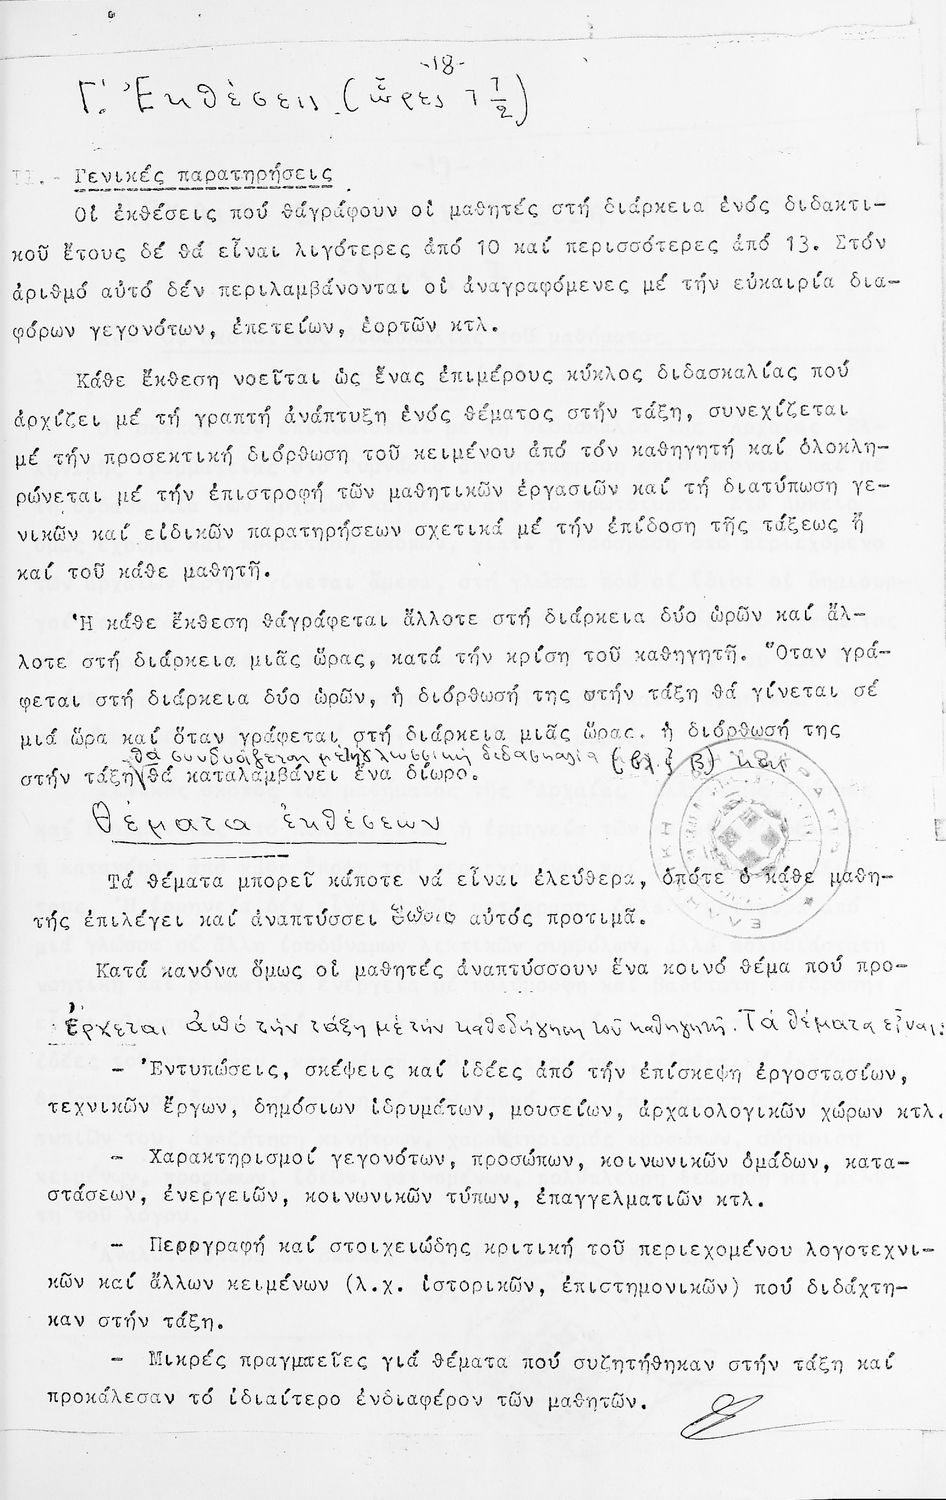 -18-
Γ. Ἐκθέσεις (ὧρες 1 1/2)
II.- Γενικές παρατηρήσεις
Οἱ ἐκθέσεις πού θάγράφουν οἱ μαθητές στή διάρκεια ἑνός διδακτι-
κοῦ ἔτους δέ θά εἶναι λιγότερες ἀπό 10 καί περισσότερες ἀπό 13. Στόν
ἀριθμό αὐτό δέν περιλαμβάνονται οἱ ἀναγραφόμενες μέ τήν εὐκαιρία δια-
φόρων γεγονότων, ἐπετείων, ἑορτῶν κτλ.
Κάθε ἔκθεση νοεῖται ὡς ἕνας ἐπιμέρους κύκλος διδασκαλίας πού
ἀρχίζει μέ τή γραπτή ἀνάπτυξη ἑνός θέματος στήν τάξη, συνεχίζεται
μέ τήν προσεκτική διόρθωση τοῦ κειμένου ἀπό τόν καθηγητή καί ὁλοκλη-
ρώνεται μέ τήν ἐπιστροφή τῶν μαθητικῶν ἐργασιῶν καί τή διατύπωση γε-
νικῶν καί εἰδικῶν παρατηρήσεων σχετικά μέ τήν ἐπίδοση τῆς τάξεως ἤ
καί τοῦ κάθε μαθητῆ.
Ἡ κάθε ἔκθεση θάγράφεται ἄλλοτε στή διάρκεια δύο ὡρῶν καί ἄλ-
λοτε στή διάρκεια μιᾶς ὥρας, κατά τήν κρίση τοῦ καθηγητῆ. Ὅταν γρά-
φεται στή διάρκεια δύο ὡρῶν, ἡ διόρθωσή της στήν τάξη θά γίνεται σέ
μιά ὥρα καί ὅταν γράφεται στή διάρκεια μιᾶς ὥρας. ἡ διόρθωσή της
θά συνδυάζεται μέ τή γλωσσική διδασκαλία (βλ. ξ β) καί
στήν τάξη θά καταλαμβάνει ἕνα δίωρο.
Θέματα ἐκθέσεων
Τά θέματα μπορεῖ κάποτε νά εἶναι ἐλεύθερα, ὁπότε ὁ κάθε μαθη-
τής ἐπιλέγει καί ἀναπτύσσει ὅποιο αὐτός προτιμᾶ.
Κατά κανόνα ὅμως οἱ μαθητές ἀναπτύσσουν ἕνα κοινό θέμα πού προ-
έρχεται ἀπό τήν τάξη μέ τήν καθοδήγηση τοῦ καθηγητῆ. Τά θέματα εἶναι:
- Ἐντυπώσεις, σκέψεις καί ἰδέες ἀπό τήν ἐπίσκεψη ἐργοστασίων,
τεχνικῶν ἔργων, δημόσιων ἱδρυμάτων, μουσείων, ἀρχαιολογικῶν χώρων κτλ.
- Χαρακτηρισμοί γεγονότων, προσώπων, κοινωνικῶν ὁμάδων, κατα-
στάσεων, ἐνεργειῶν, κοινωνικῶν τύπων, ἐπαγγελματιῶν κτλ.
- Περργραφή καί στοιχειώδης κριτική τοῦ περιεχομένου λογοτεχνι-
κῶν καί ἄλλων κειμένων (λ.χ. ἱστορικῶν, ἐπιστημονικῶν) πού διδάχτη-
καν στήν τάξη.
- Μικρές πραγμπεῖες γιά θέματα πού συζητήθηκαν στήν τάξη καί
προκάλεσαν τό ἰδιαίτερο ἐνδιαφέρον τῶν μαθητῶν.